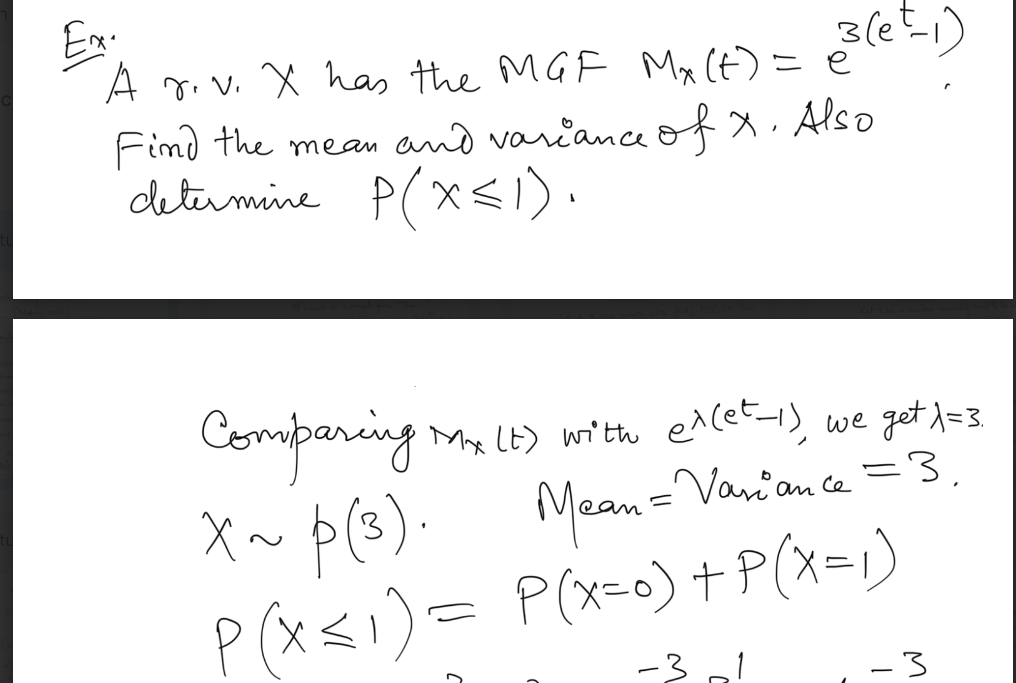 Ex.
A r.v. X has the MGF Mx(t) = e^3(e^t-1).
Find the mean and variance of X. Also
determine P(X≤1).
Comparing Mx(t) with e^λ(e^t-1), we get λ=3.
X ~ p(3). Mean = Variance = 3.
P(X≤1) = P(X=0) + P(X=1)
-3 -3